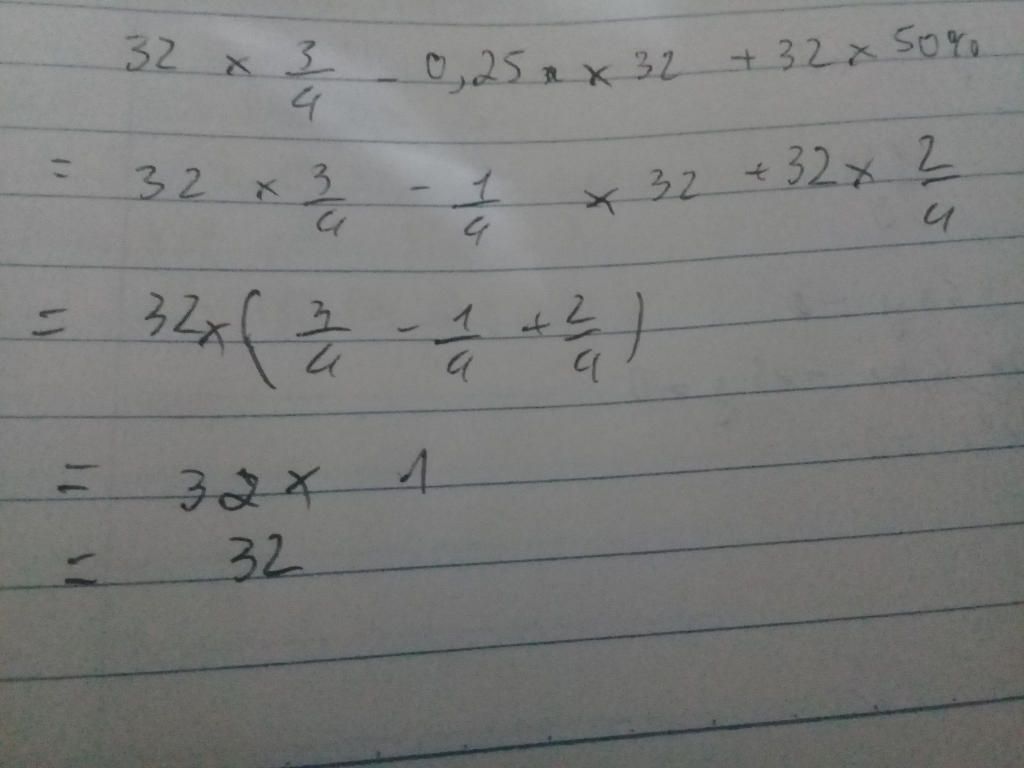 32 × 3/4 - 0,25 × 32 + 32 × 50%
= 32 × 3/4 - 1/4 × 32 + 32 × 2/4
= 32 × (3/4 - 1/4 + 2/4)
= 32 × 1
= 32